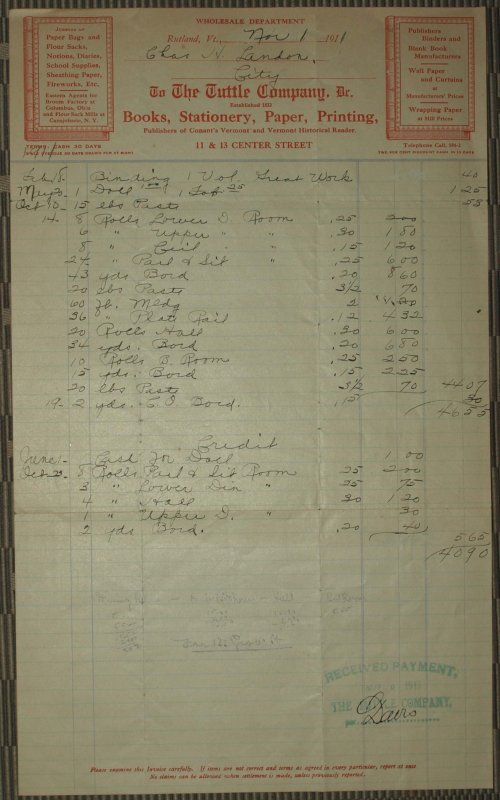 WHOLESALE DEPARTMENT
Rutland, Vt., Nov 1 1911
Chas H. Landon,
City
To The Tuttle Company, Dr.
Established 1832
Books, Stationery, Paper, Printing,
Publishers of Conant's Vermont and Vermont Historical Reader.
11 & 13 CENTER STREET
Jobbers of
Paper Bags and
Flour Sacks,
Notions, Diaries,
School Supplies,
Sheathing Paper,
Fireworks, Etc.
Eastern Agents for
Broom Factory at
Columbus, Ohio
and Flour Sack Mills at
Canajoharie, N. Y.
TERMS, CASH 30 DAYS
Publishers
Binders and
Blank Book
Manufacturers
Wall Paper
and Curtains
at
Manufacturers' Prices
Wrapping Paper
at Mill Prices
Telephone Call, 104-2
Feb 8 Binding 1 Vol. Great Work 40
1 Doll 1.00 1 25 1 25
Oct 10 15 lbs Paste 53
14 8 Rolls Lower D. Room .25 2 00
6 " Upper " " .30 1 80
8 " Ceil " .15 1 20
24 " Parl & Sit " .25 6 00
43 yds Bord .20 8 60
20 lbs Paste 3 1/2 70
60 ft. Mldg 2 1.20
36 " Plate Rail .12 4 32
20 Rolls Hall .30 6 00
34 yds. Bord .20 6 80
10 Rolls B. Room .25 2 50
15 yds. Bord .15 2 25
20 lbs Paste 3 1/2 70 44 07
19 2 yds. Bord. .15 30
46 55
Credit
June 1 Cash for Doll 1 00
Oct 23 8 Rolls Parl & Sit Room 25 2 00
3 " Lower Din " 25 75
4 " Hall 30 1 20
1 " Upper D. " 30
2 yds Bord. .20 40
5 65
40 90
RECEIVED PAYMENT,
THE TUTTLE COMPANY.
Davis
Please examine this Invoice carefully. If items are not correct and terms as agreed in every particular, report at once
No claims can be allowed when settlement is made, unless previously reported.